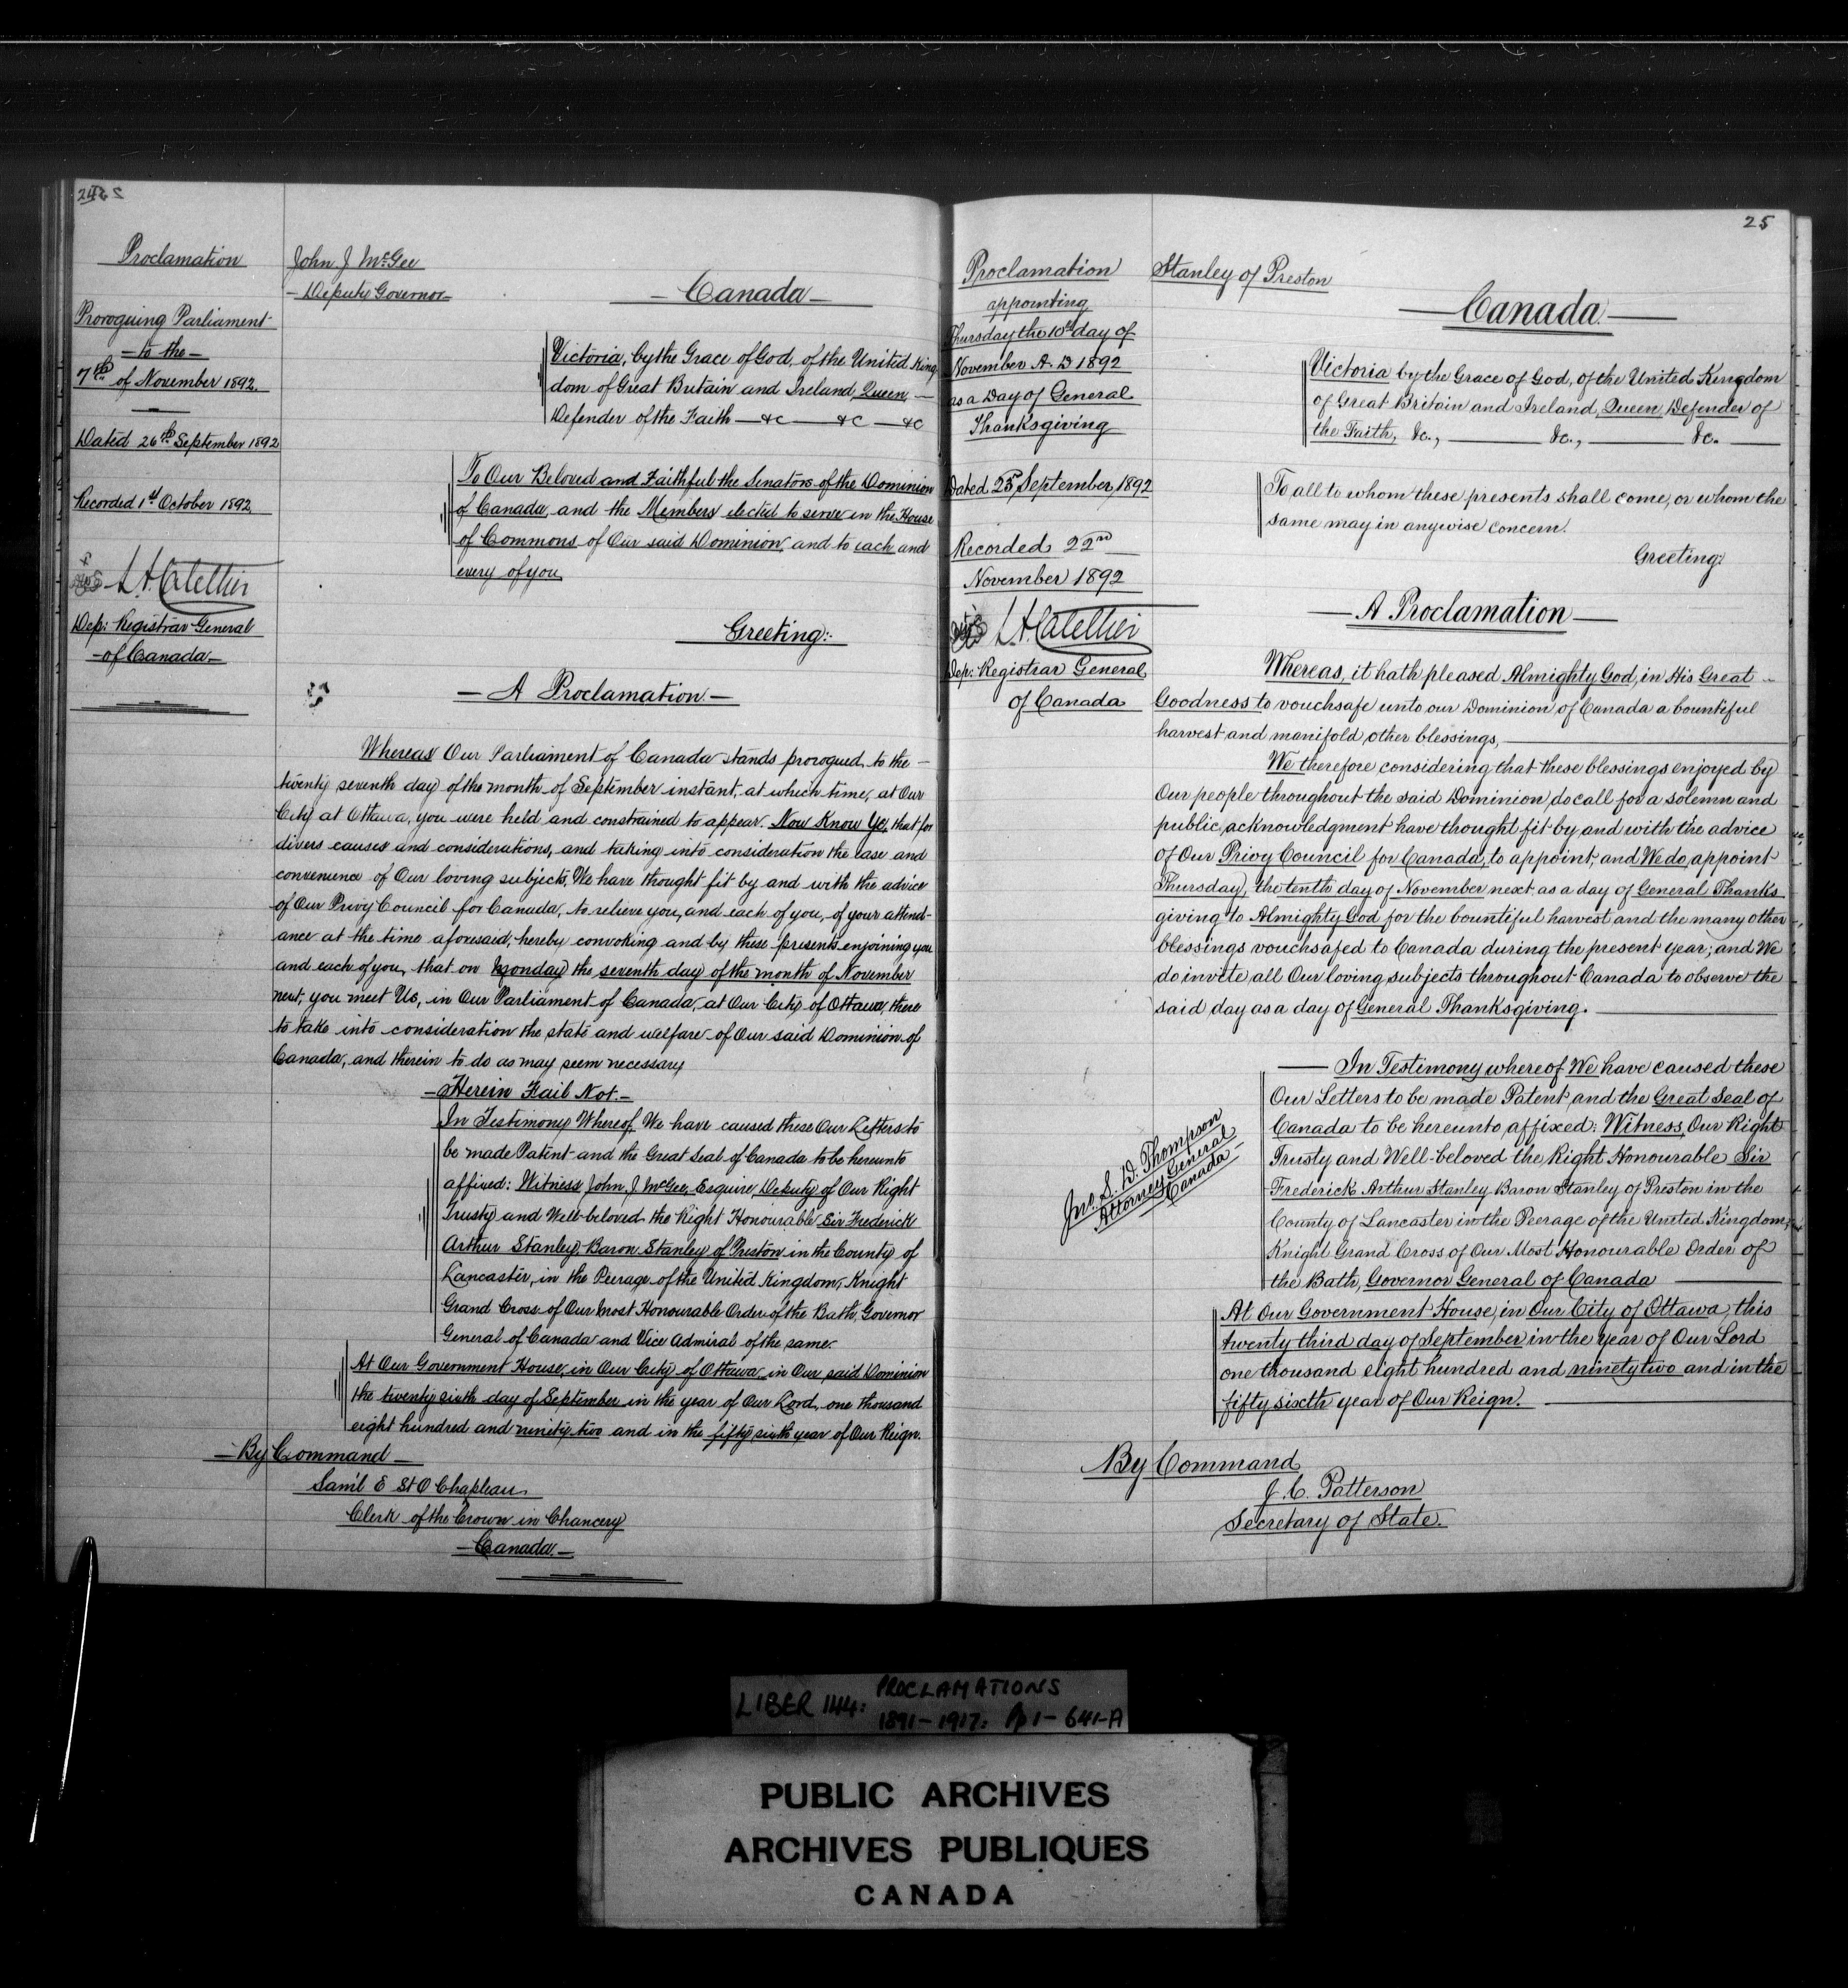 24
Proclamation
Proroguing Parliament
— to the —
7th of November 1892.
Dated 26th September 1892
Recorded 1st October 1892
L. A. Catellier
Dep: Registrar General
— of Canada —
John J McGee
— Deputy Governor —
— Canada —
Victoria, by the Grace of God, of the United King
dom of Great Britain and Ireland, Queen, —
Defender of the Faith — &c — &c — &c
To Our Beloved and Faithful the Senators of the Dominion
of Canada, and the Members elected to serve in the House
of Commons of Our said Dominion, and to each and
every of you,
Greeting:
— A Proclamation —
Whereas Our Parliament of Canada stands prorogued to the —
twenty seventh day of the month of September instant, at which time, at Our
City at Ottawa, you were held and constrained to appear. Now Know Ye, that for
divers causes and considerations, and taking into consideration the ease and
convenience of Our loving subjects, We have thought fit by and with the advice
of Our Privy Council for Canada, to relieve you, and each of you, of your attend-
ance at the time aforesaid; hereby convoking and by these presents enjoining you
and each of you, that on Monday the seventh day of the month of November
next, you meet Us, in Our Parliament of Canada, at Our City of Ottawa, there
to take into consideration the state and welfare of Our said Dominion of
Canada, and therein to do as may seem necessary
— Herein Fail Not. —
In Testimony Whereof, We have caused these Our Letters to
be made Patent and the Great Seal of Canada to be hereunto
affixed: Witness John J. McGee, Esquire, Deputy of Our Right
Trusty and Well-beloved the Right Honourable Sir Frederick
Arthur Stanley, Baron Stanley of Preston in the County of
Lancaster, in the Peerage of the United Kingdom, Knight
Grand Cross of Our Most Honourable Order of the Bath, Governor
General of Canada and Vice Admiral of the same.
At Our Government House, in Our City of Ottawa, in Our said Dominion
the twenty sixth day of September in the year of Our Lord, one thousand
eight hundred and ninety two and in the fifty sixth year of Our Reign.
— By Command —
Saml E St O Chapleau
Clerk of the Crown in Chancery
— Canada. —
25
Proclamation
appointing
Thursday the 10th day of
November A. D 1892
as a Day of General
Thanksgiving
Dated 23rd September 1892
Recorded 22nd
November 1892
L. A. Catellier
Dep: Registrar General
of Canada
Stanley of Preston
— Canada —
Victoria by the Grace of God, of the United Kingdom
of Great Britain and Ireland, Queen, Defender of
the Faith, &c., — &c., — &c. —
To all to whom these presents shall come, or whom the
same may in anywise concern.
Greeting:
— A Proclamation —
Whereas, it hath pleased Almighty God, in His Great
Goodness to vouchsafe unto our Dominion of Canada a bountiful
harvest and manifold other blessings, —
We therefore considering that these blessings enjoyed by
Our people throughout the said Dominion, do call for a solemn and
public acknowledgment have thought fit by and with the advice
of Our Privy Council for Canada, to appoint, and We do appoint
Thursday, the tenth day of November next as a day of General Thanks
giving to Almighty God for the bountiful harvest and the many other
blessings vouchsafed to Canada during the present year; and We
do invite all Our loving subjects throughout Canada to observe the
said day as a day of General Thanksgiving. —
— In Testimony whereof We have caused these
Our Letters to be made Patent, and the Great Seal of
Canada to be hereunto affixed: Witness, Our Right
Trusty and Well-beloved the Right Honourable Sir
Frederick Arthur Stanley Baron Stanley of Preston in the
County of Lancaster in the Peerage of the United Kingdom,
Knight Grand Cross of Our Most Honourable Order of
the Bath, Governor General of Canada —
Jno. S. D. Thompson
Attorney General
Canada —
At Our Government House, in Our City of Ottawa, this
twenty third day of September in the year of Our Lord
one thousand eight hundred and ninety two and in the
fifty sixth year of Our Reign. —
By Command
J. C. Patterson
Secretary of State.
LIBER 144: PROCLAMATIONS
1891 – 1917. Pp 1 – 641-A
PUBLIC ARCHIVES
ARCHIVES PUBLIQUES
CANADA